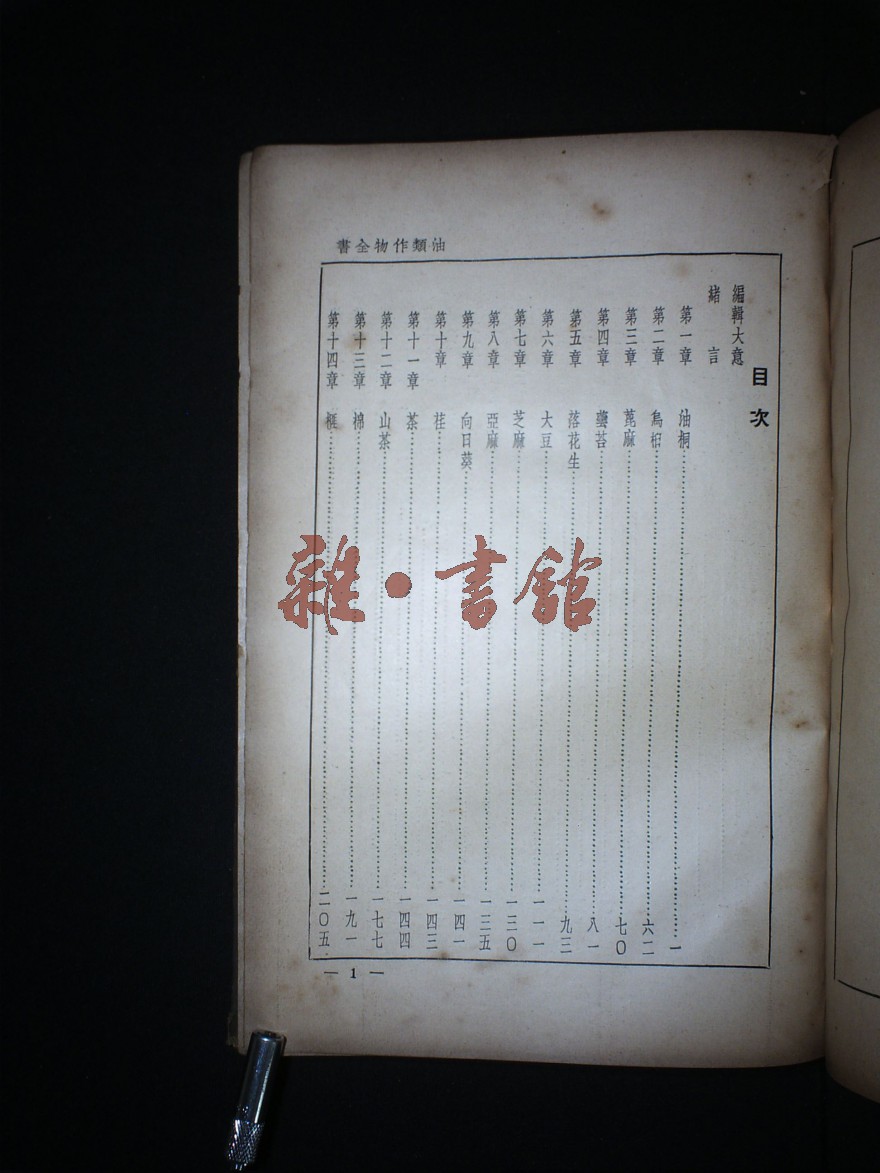 油類作物全書
目次
編輯大意
緒言
第一章 油桐 一
第二章 烏桕 六二
第三章 蓖麻 七〇
第四章 蕓苔 八一
第五章 落花生 九三
第六章 大豆 一一一
第七章 芝麻 一三〇
第八章 亞麻 一三五
第九章 向日葵 一四一
第十章 荏 一四三
第十一章 茶 一四四
第十二章 山茶 一七七
第十三章 棉 一九一
第十四章 榧 二〇五
— 1 —
雜·書館